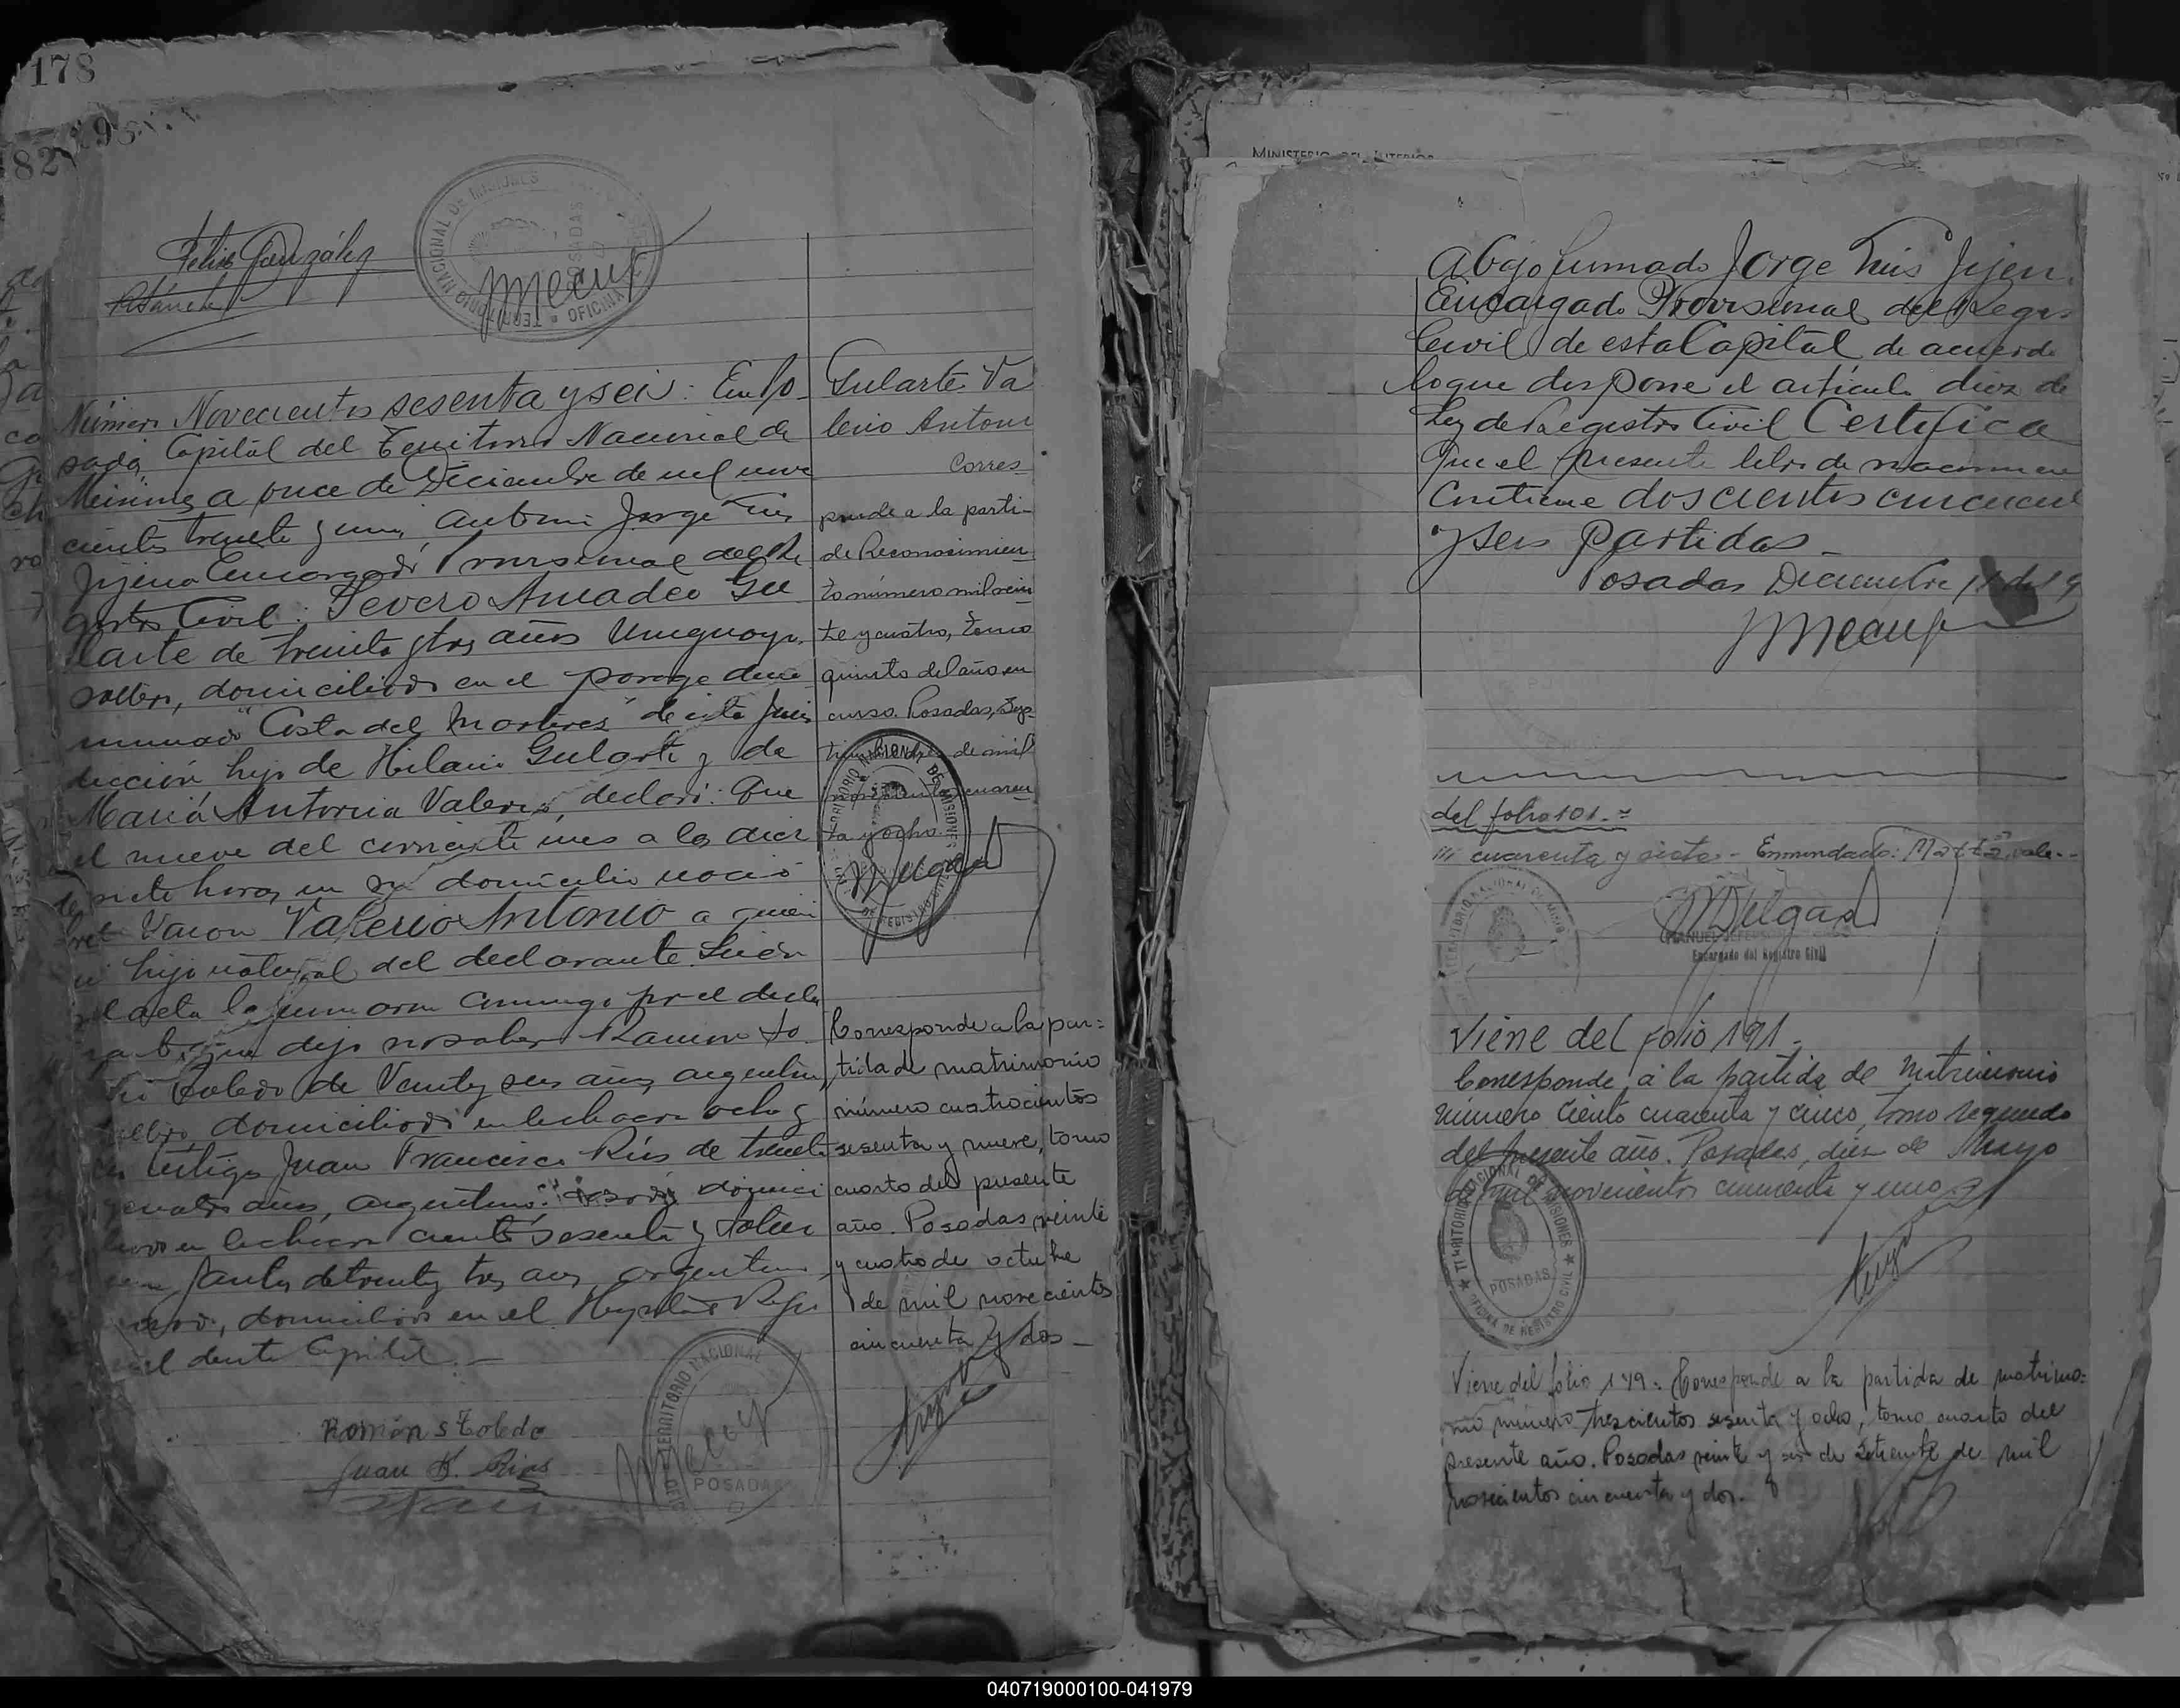 178
82
95
Félix González
TERRITORIO NACIONAL DE MISIONES
POSADAS
OFICINA
Número Novecientos sesenta y seis: En Po
sadas, Capital del Territorio Nacional de
Misiones a once de Diciembre de mil nove
cientos treinta y uno, ante mi Jorge Luis
Jijena Encargado Provisional del Re
gistro Civil: Severo Amadeo Gu
larte de treinta y tres años Uruguayo,
soltero, domiciliado en el parage deno
minado "Costa del Martires" de esta juris
dicción, hijo de Hilario Gularte y de
Maria Antonia Valerio, declaró: Que
el nueve del corriente mes a las diez
y siete horas, en su domicilio nació
Varon Valerio Antonio a quien
hijo natural del declarante. Leida
el acta la firmaron conmigo por el decla
que dijo no saber Ramon
Toledo de veinty seis años, argentino,
soltero, domiciliado en la chacra ocho y
testigos Juan Francisco Rios de treinta
y cuatro años, argentino, domici
liado en la chacra ciento sesenta y
Santos de treinty tres años, argentino,
domiciliado en el
de esta Capital.—
Ramón S Toledo
Juan F. Rios
TERRITORIO NACIONAL
POSADAS
Gularte Va
lerio Antoni
Corres
ponde a la parti-
de Reconocimien
to número mil vein
te y cuatro, tomo
quinto del año en
curso. Posadas, Sep
tiembre tres de mil
novecientos cuaren
ta y ocho.
TERRITORIO NACIONAL DE MISIONES
DE REGISTRO CIVIL
MDelgado
Corresponde a la par=
tida de matrimonio
número cuatrocientos
sesenta y nueve, tomo
cuarto del presente
año. Posadas veinte
y cuatro de octubre
de mil novecientos
cincuenta y dos—
MINISTERIO DEL INTERIOR
Abajo firmado Jorge Luis Jijen
Encargado Provisional del Regis
Civil de esta Capital de acuerdo
lo que dispone el artículo diez de
Ley de Registro Civil Certifica
Que el presente libro de nacimien
Contiene doscientos cincuen
y seis partidas—
Posadas Diciembre
del folio 101.=
cuarenta y siete.- Enmendado: vale.-
MDelgado
MANUEL
Encargado del Registro Civil
Viene del folio 191.
Corresponde a la partida de matrimonio
número ciento cuarenta y cinco, tomo segundo
del presente año. Posadas, diez de Mayo
de mil novecientos cincuenta y uno.
TERRITORIO NACIONAL DE MISIONES
POSADAS
OFICINA DE REGISTRO CIVIL
Viene del folio 179. Corresponde a la partida de matrimo=
nio número trescientos sesenta y ocho, tomo cuarto del
presente año. Posadas veinte y seis de Setiembre de mil
novecientos cincuenta y dos.
040719000100-041979